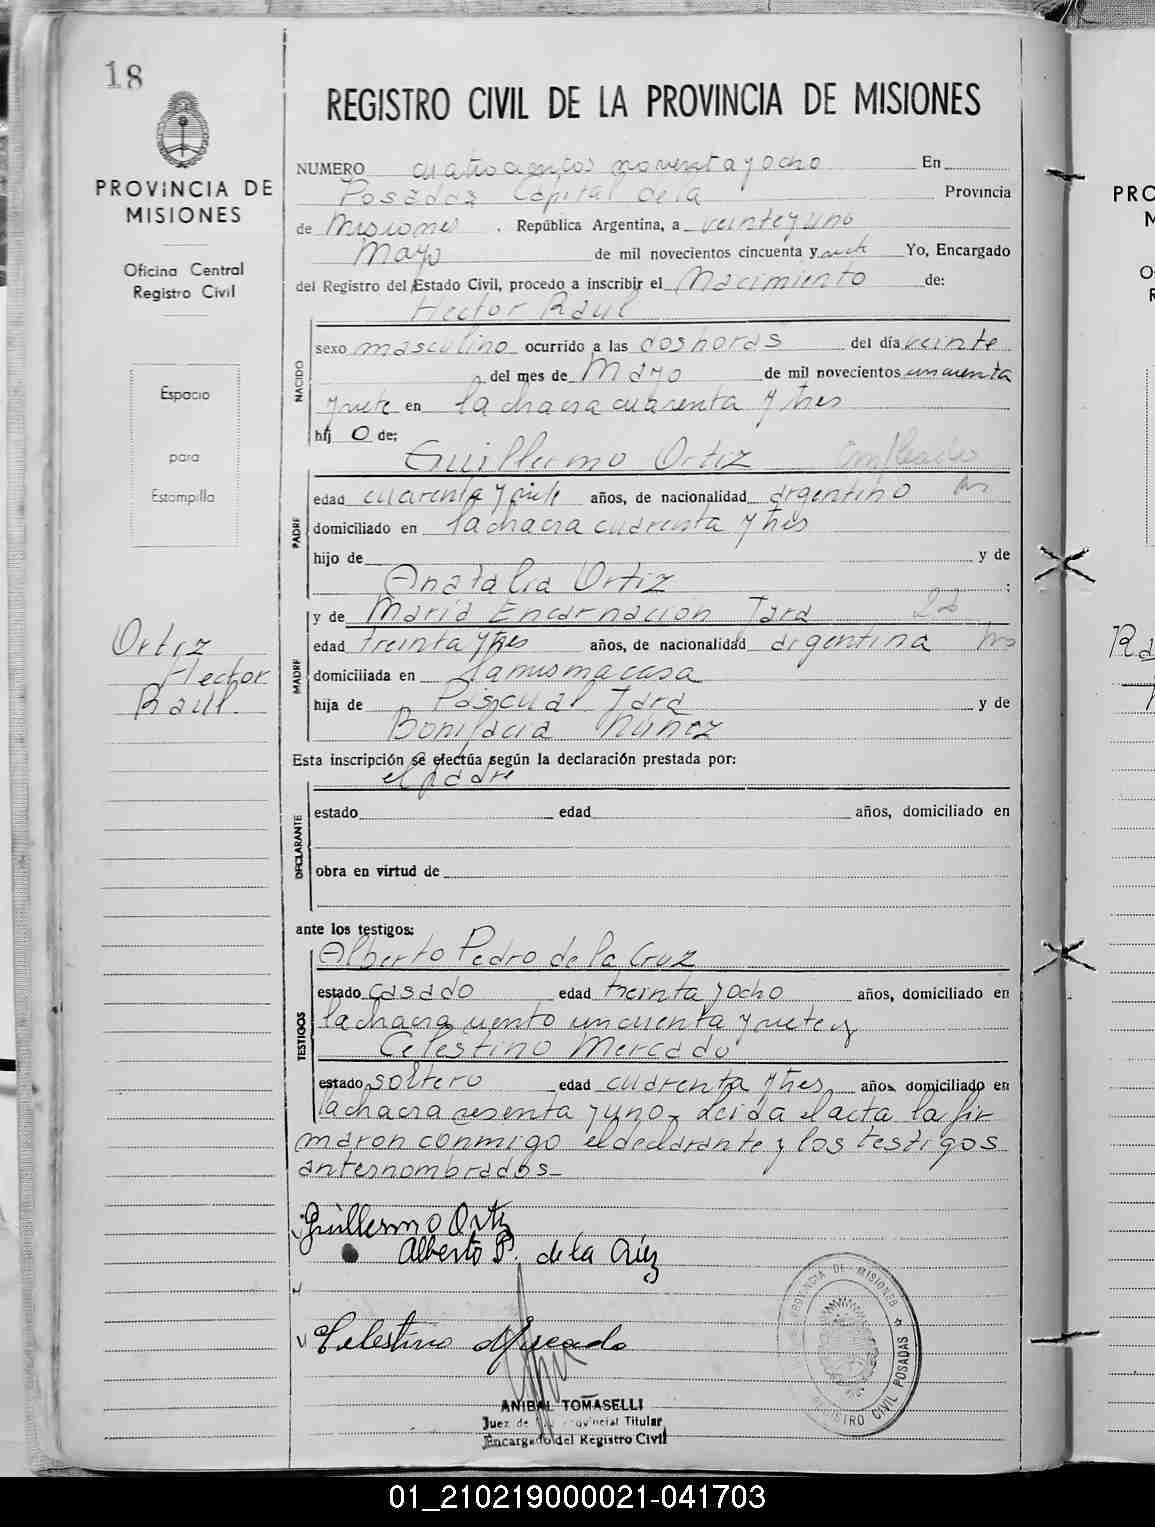 18
PROVINCIA DE
MISIONES
Oficina Central
Registro Civil
Espacio
para
Estampilla
Ortiz
Hector
Raul.
REGISTRO CIVIL DE LA PROVINCIA DE MISIONES
NUMERO cuatrocientos noventa y ocho En
Posadas Capital de la Provincia
de Misiones . República Argentina, a veinte y uno
Mayo de mil novecientos cincuenta y siete Yo, Encargado
del Registro del Estado Civil, procedo a inscribir el Nacimiento de:
Hector Raul
NACIDO
sexo masculino ocurrido a las dos horas del día veinte
del mes de Mayo de mil novecientos cincuenta
y siete en la chacra cuarenta y tres
hij o de;
Guillermo Ortiz Empleado
PADRE
edad cuarenta y siete años, de nacionalidad argentino
domiciliado en la chacra cuarenta y tres
hijo de y de
Anatalia Ortiz ;
y de Maria Encarnacion Jara
MADRE
edad treinta y tres años, de nacionalidad argentina
domiciliada en la misma casa
hija de Pascual Jara y de
Bonifacia Nuñez
Esta inscripción se efectúa según la declaración prestada por:
el padre
DECLARANTE
estado edad años, domiciliado en
obra en virtud de
ante los testigos:
Alberto Pedro de la Cruz
TESTIGOS
estado casado edad treinta y ocho años, domiciliado en
la chacra ciento cincuenta y siete y
Celestino Mercado
estado soltero edad cuarenta y tres años, domiciliado en
la chacra sesenta y uno, leida el acta la fir
maron conmigo el declarante y los testigos
antesnombrados_
Guillermo Ortiz
Alberto P. de la Cruz
Celestino Mercado
ANIBAL TOMASELLI
Juez de Provincial Titular
Encargado del Registro Civil
PROVINCIA DE MISIONES
REGISTRO CIVIL POSADAS
01_210219000021-041703